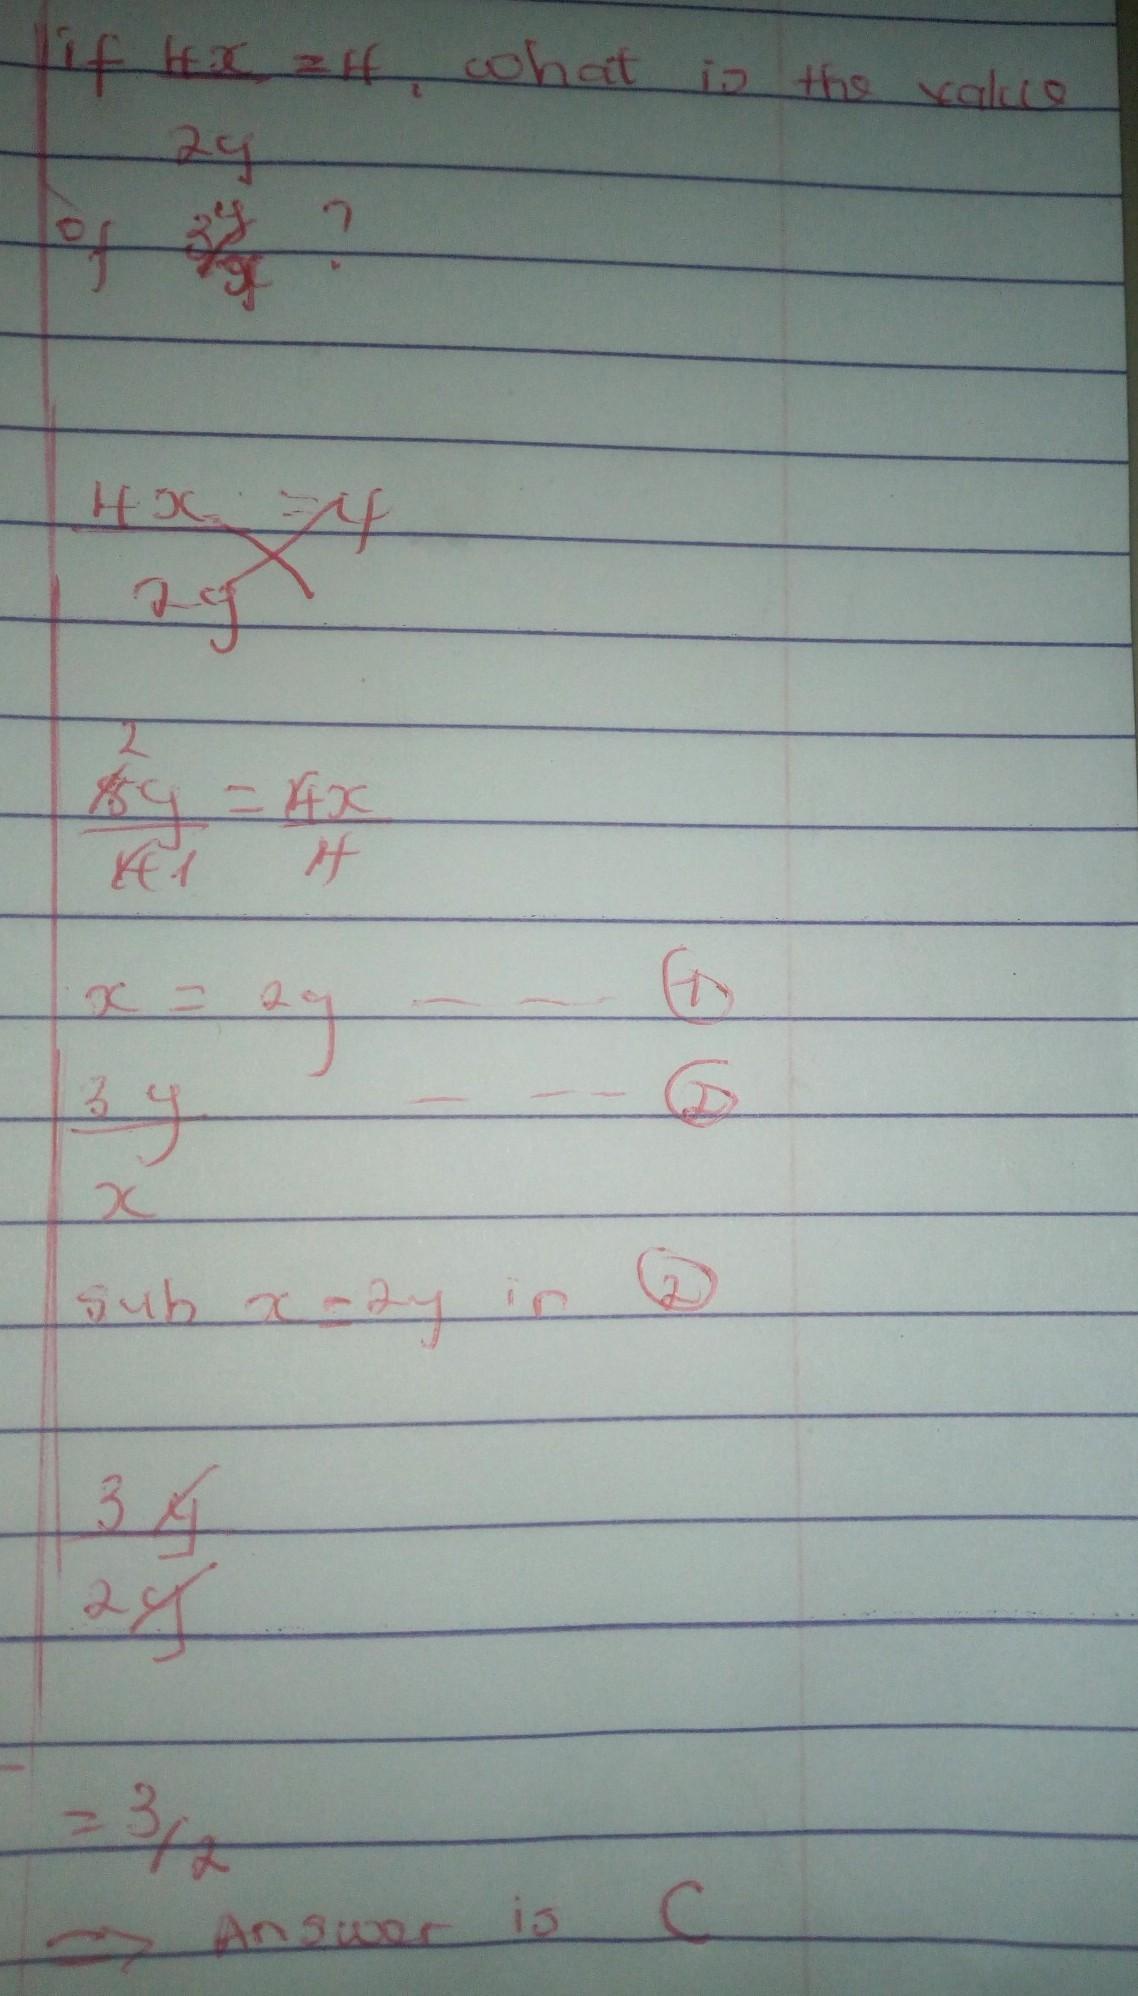 if 4x = 4, what is the value
2y
of 3y/x ?
4x = 4
2y
2
8y = 4x
4 1 4
x = 2y - - - ①
3y - - - ②
x
sub x = 2y in ②
3y
2y
= 3/2
⟹ Answer is C